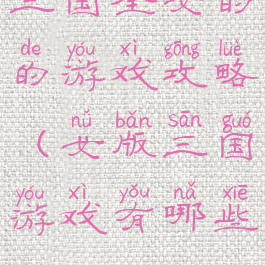 de yóu xì gōng lüè
的游戏攻略
nǚ bǎn sān guó
（女版三国
yóu xì yǒu nǎ xiē
游戏有哪些